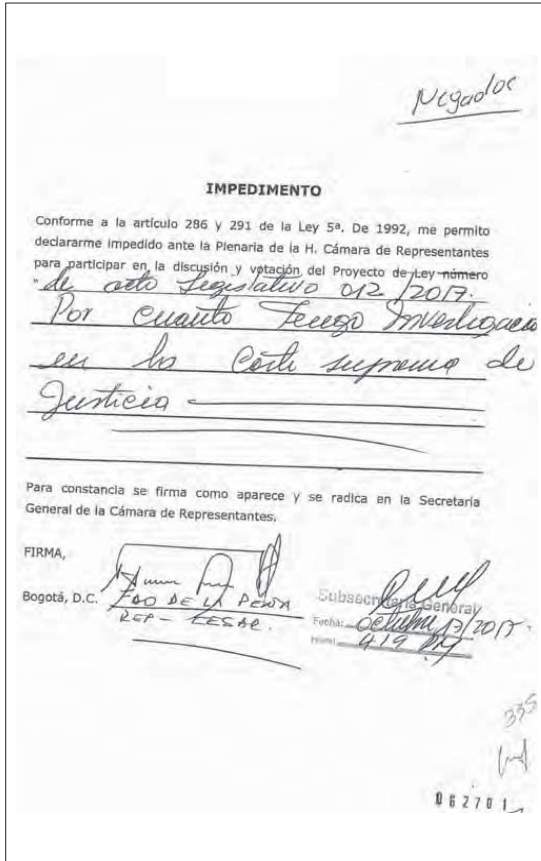 Negado
IMPEDIMENTO
Conforme a la artículo 286 y 291 de la Ley 5ª. De 1992, me permito
declararme impedido ante la Plenaria de la H. Cámara de Representantes
para participar en la discusión y votación del Proyecto de Ley número
" de acto Legislativo 012/2017.
Por cuanto Tengo Investigacio
en la Corte suprema de
Justicia
Para constancia se firma como aparece y se radica en la Secretaria
General de la Cámara de Representantes.
FIRMA,
Bogotá, D.C. FDO DE LA PEÑA
REP - CESAR.
Subsecretaría General
Fecha: octubre 17/2017.
Hora: 4:19 PM
335
062701